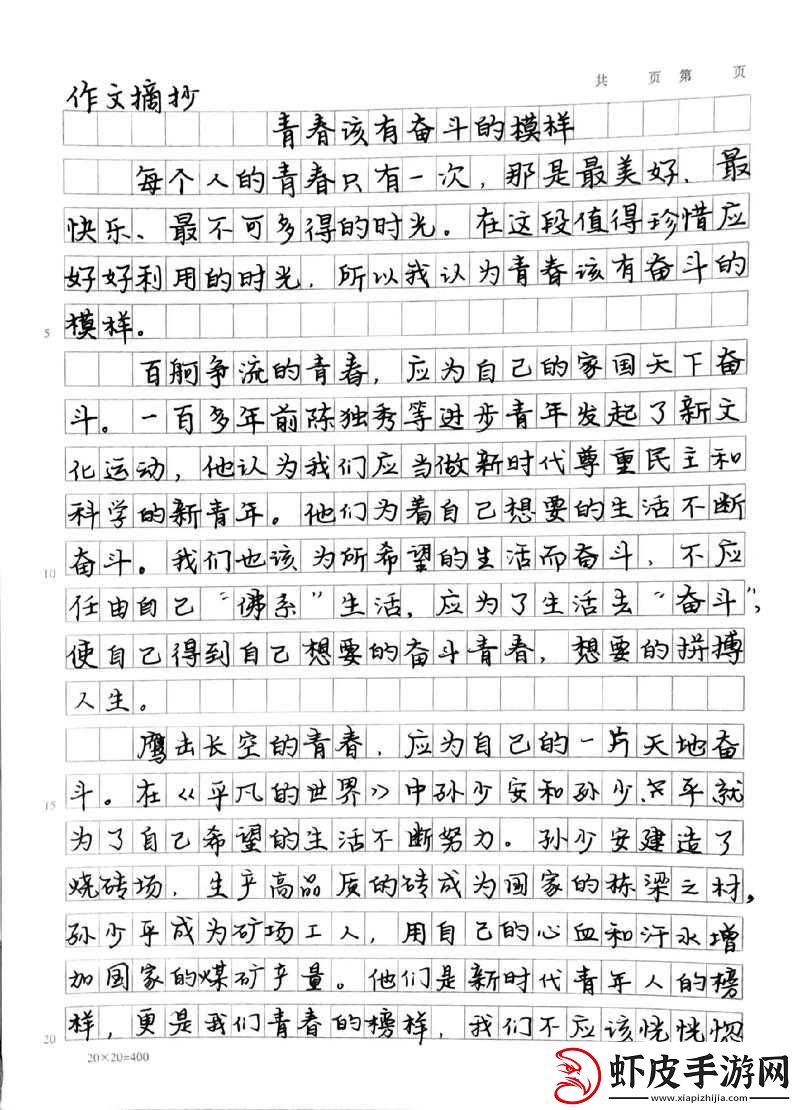 共 页 第 页
作文摘抄
青春该有奋斗的模样
每个人的青春只有一次，那是最美好、最
快乐、最不可多得的时光。在这段值得珍惜应
好好利用的时光，所以我认为青春该有奋斗的
模样。
5
百舸争流的青春，应为自己的家国天下奋
斗。一百多年前陈独秀等进步青年发起了新文
化运动，他认为我们应当做新时代尊重民主和
科学的新青年。他们为着自己想要的生活不断
奋斗。我们也该为所希望的生活而奋斗，不应
10
任由自己“佛系”生活，应为了生活去“奋斗”，
使自己得到自己想要的奋斗青春，想要的拼搏
人生。
鹰击长空的青春，应为自己的一片天地奋
斗。在《平凡的世界》中孙少安和孙少平就
15
为了自己希望的生活不断努力。孙少安建造了
烧砖场，生产高品质的砖成为国家的栋梁之材，
孙少平成为矿场工人，用自己的心血和汗水增
加国家的煤矿产量。他们是新时代青年人的榜
样，更是我们青春的榜样，我们不应该恍恍惚
20
20×20=400
虾皮手游网
www.xiapizhijia.com